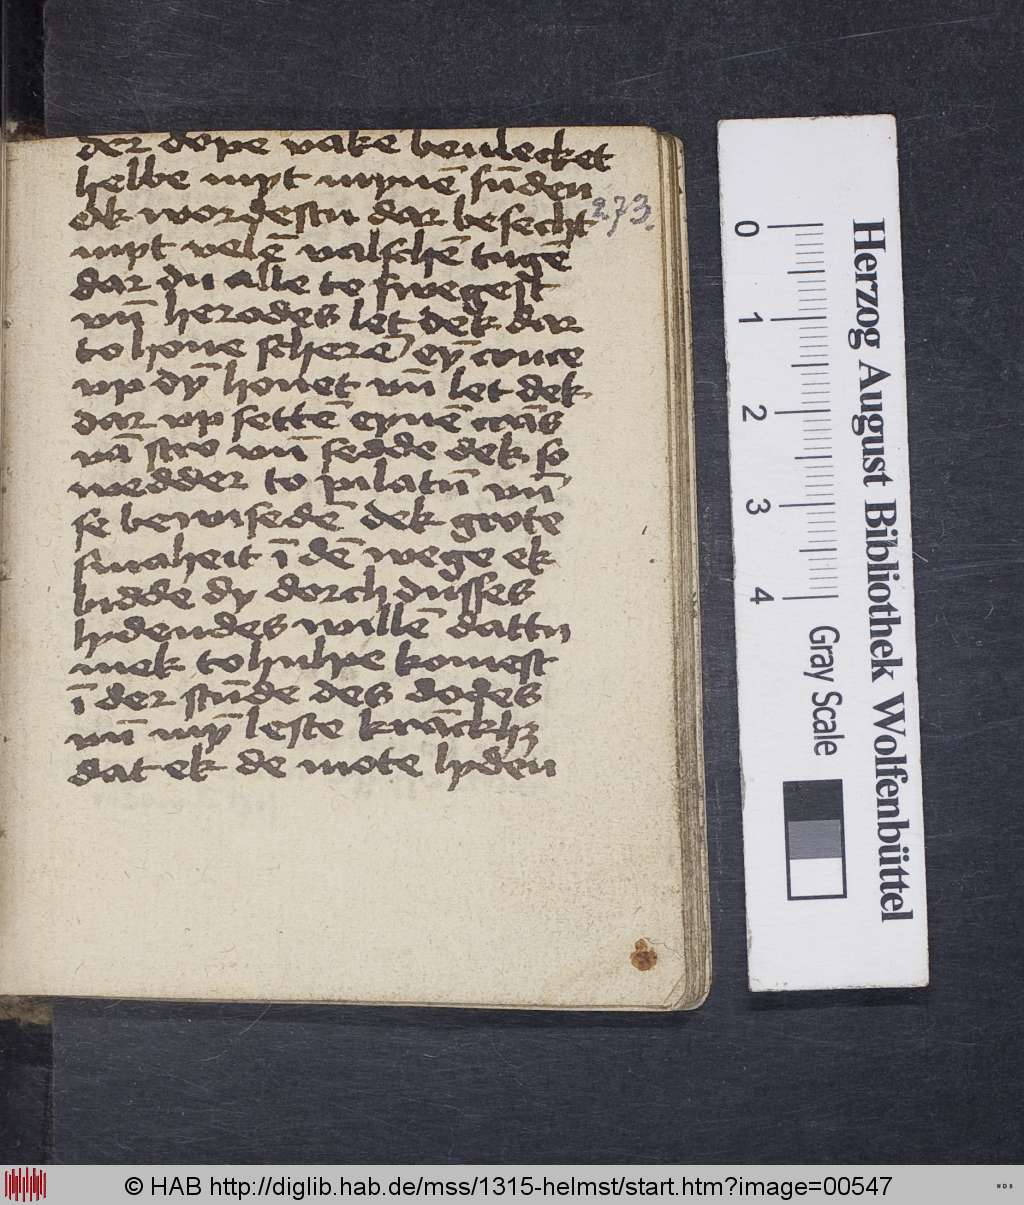 der dope vake beulecket
hebbe myt mynē sūden
ok wordestu dar besecht
273
myt velē valschē tugē
dar du alle to swegest
vn̄ herodes let dek dar
to houe scherē eyn cruce
vp dȳ houet vn̄ let dek
dar vp settē eynē crās
vā stro vn̄ sedde dek so
wedder to pilatū vn̄
se bewisedē dek grote
smaheit ī dē wege ek
bidde dy dorch dusses
lydendes willē dattu
mek to hulpe komest
ī der stūde des dodes
vn̄ mȳ leste krāckhꝫ
dat ek de mote lyden
0
1
2
3
4
Gray Scale
Herzog August Bibliothek Wolfenbüttel
© HAB http://diglib.hab.de/mss/1315-helmst/start.htm?image=00547